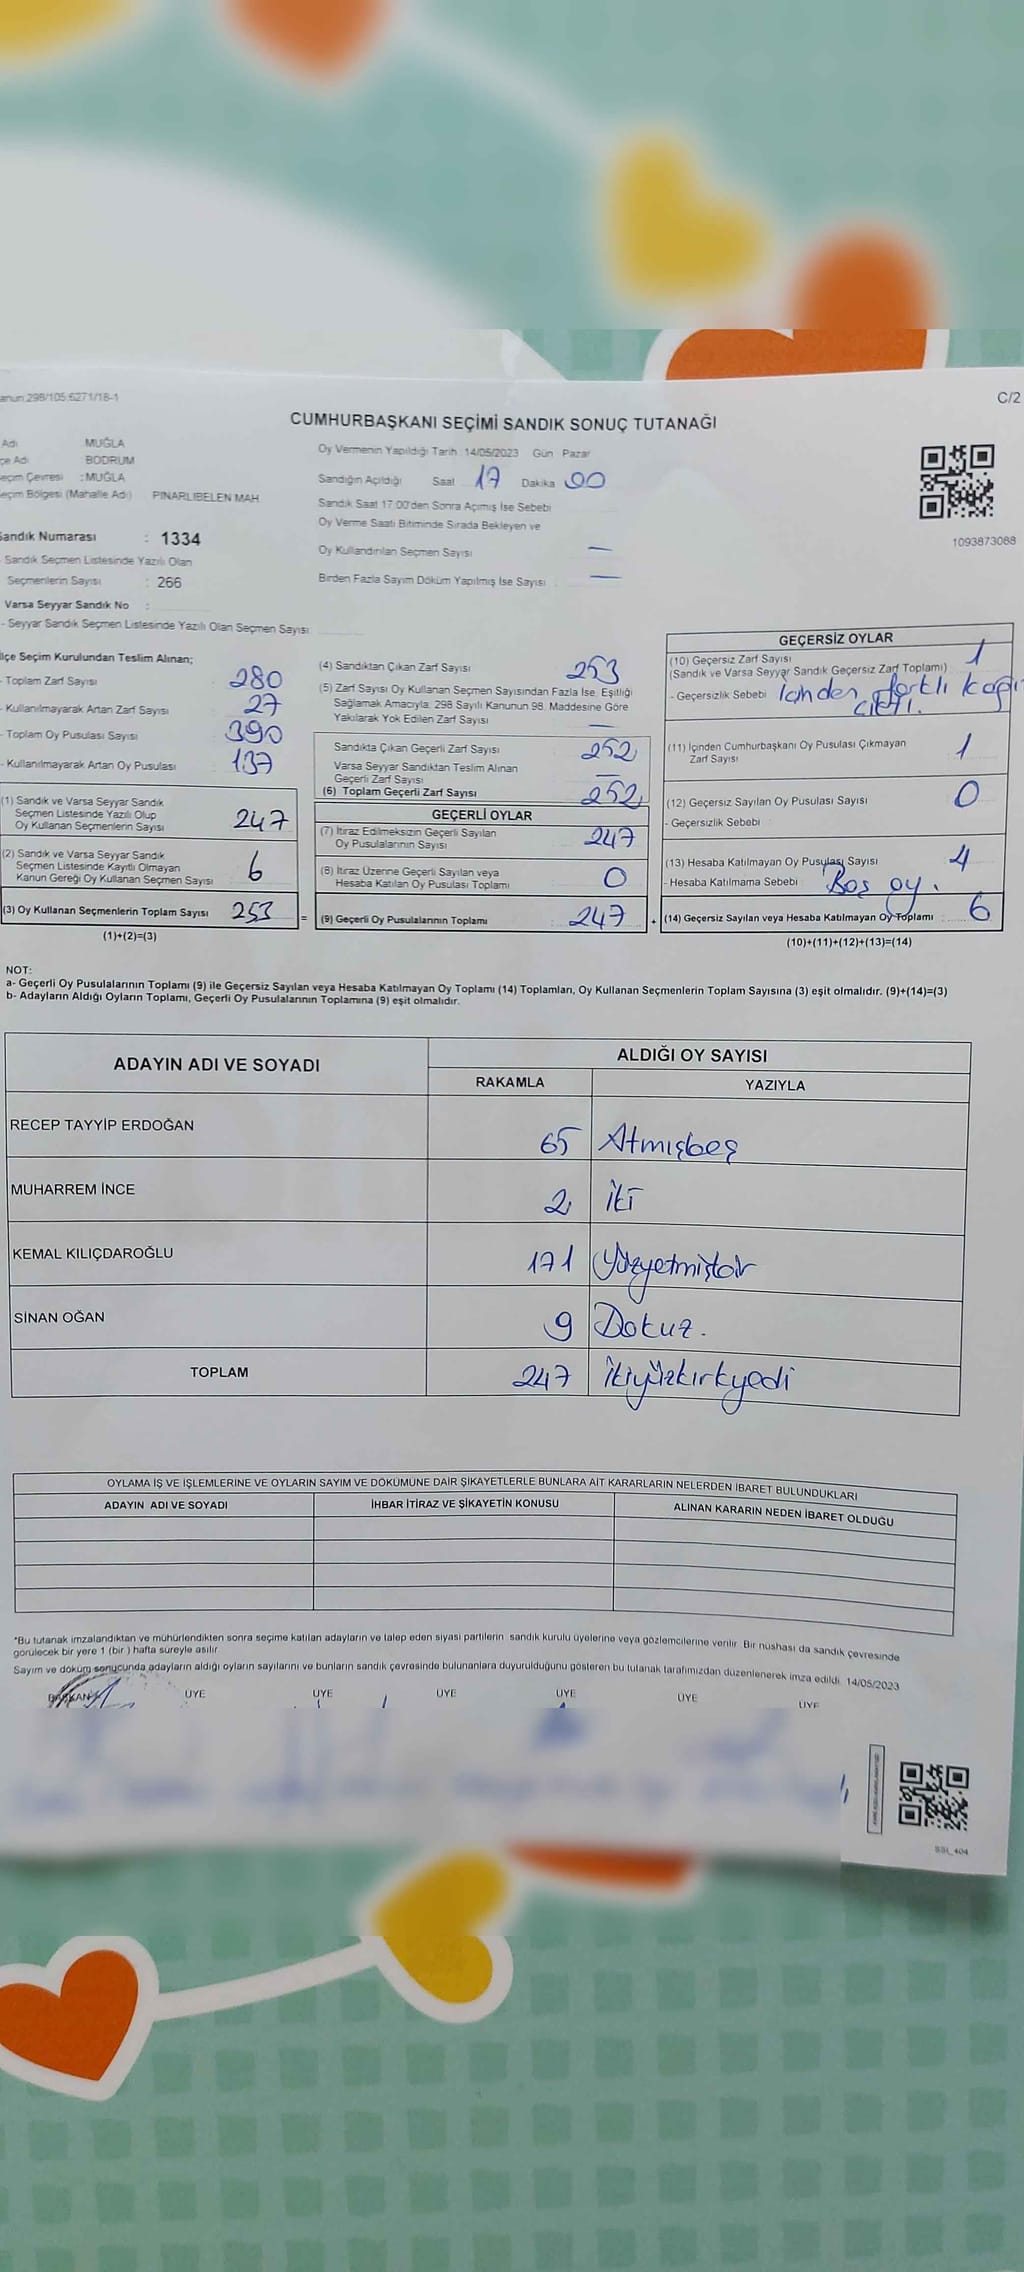 anun:298/105:6271/18-1
C/2
CUMHURBAŞKANI SEÇİMİ SANDIK SONUÇ TUTANAĞI
Adı MUĞLA
çe Adı BODRUM
eçim Çevresi : MUĞLA
eçim Bölgesi (Mahalle Adı) PINARLIBELEN MAH.
Sandık Numarası : 1334
Sandık Seçmen Listesinde Yazılı Olan
Seçmenlerin Sayısı : 266
Varsa Seyyar Sandık No :
- Seyyar Sandık Seçmen Listesinde Yazılı Olan Seçmen Sayısı:
Oy Vermenin Yapıldığı Tarih 14/05/2023 Gün Pazar
Sandığın Açıldığı Saat 17 Dakika 00
Sandık Saat 17:00'den Sonra Açımış İse Sebebi
Oy Verme Saati Bitiminde Sırada Bekleyen ve
Oy Kullandırılan Seçmen Sayısı —
Birden Fazla Sayım Döküm Yapılmış İse Sayısı —
1093873088
lçe Seçim Kurulundan Teslim Alınan;
- Toplam Zarf Sayısı 280
- Kullanılmayarak Artan Zarf Sayısı 27
- Toplam Oy Pusulası Sayısı 390
- Kullanılmayarak Artan Oy Pusulası 137
(1) Sandık ve Varsa Seyyar Sandık
Seçmen Listesinde Yazılı Olup
Oy Kullanan Seçmenlerin Sayısı 247
(2) Sandık ve Varsa Seyyar Sandık
Seçmen Listesinde Kayıtlı Olmayan
Kanun Gereği Oy Kullanan Seçmen Sayısı 6
(3) Oy Kullanan Seçmenlerin Toplam Sayısı 253 =
(1)+(2)=(3)
(4) Sandıktan Çıkan Zarf Sayısı 253
(5) Zarf Sayısı Oy Kullanan Seçmen Sayısından Fazla İse, Eşitliği
Sağlamak Amacıyla, 298 Sayılı Kanunun 98. Maddesine Göre
Yakılarak Yok Edilen Zarf Sayısı —
Sandıkta Çıkan Geçerli Zarf Sayısı 252
Varsa Seyyar Sandıktan Teslim Alınan
Geçerli Zarf Sayısı —
(6) Toplam Geçerli Zarf Sayısı 252
GEÇERLİ OYLAR
(7) İtiraz Edilmeksizin Geçerli Sayılan
Oy Pusulalarının Sayısı 247
(8) İtiraz Üzerine Geçerli Sayılan veya
Hesaba Katılan Oy Pusulası Toplamı 0
(9) Geçerli Oy Pusulalarının Toplamı 247 +
GEÇERSİZ OYLAR
(10) Geçersiz Zarf Sayısı 1
(Sandık ve Varsa Seyyar Sandık Geçersiz Zarf Toplamı)
- Geçersizlik Sebebi İçinden farklı
çıktı.
(11) İçinden Cumhurbaşkanı Oy Pusulası Çıkmayan
Zarf Sayısı 1
(12) Geçersiz Sayılan Oy Pusulası Sayısı 0
- Geçersizlik Sebebi
(13) Hesaba Katılmayan Oy Pusulası Sayısı 4
- Hesaba Katılmama Sebebi Boş oy.
(14) Geçersiz Sayılan veya Hesaba Katılmayan Oy Toplamı : 6
(10)+(11)+(12)+(13)=(14)
NOT:
a- Geçerli Oy Pusulalarının Toplamı (9) ile Geçersiz Sayılan veya Hesaba Katılmayan Oy Toplamı (14) Toplamları, Oy Kullanan Seçmenlerin Toplam Sayısına (3) eşit olmalıdır. (9)+(14)=(3)
b- Adayların Aldığı Oyların Toplamı, Geçerli Oy Pusulalarının Toplamına (9) eşit olmalıdır.
ADAYIN ADI VE SOYADI ALDIĞI OY SAYISI
RAKAMLA YAZIYLA
RECEP TAYYİP ERDOĞAN 65 Atmışbeş
MUHARREM İNCE 2 İki
KEMAL KILIÇDAROĞLU 171 Yüzyetmişbir
SİNAN OĞAN 9 Dokuz.
TOPLAM 247 İkiyüzkırkyedi
OYLAMA İŞ VE İŞLEMLERİNE VE OYLARIN SAYIM VE DÖKÜMÜNE DAİR ŞİKAYETLERLE BUNLARA AİT KARARLARIN NELERDEN İBARET BULUNDUKLARI
ADAYIN ADI VE SOYADI İHBAR İTİRAZ VE ŞİKAYETİN KONUSU ALINAN KARARIN NEDEN İBARET OLDUĞU
*Bu tutanak imzalandıktan ve mühürlendikten sonra seçime katılan adayların ve talep eden siyasi partilerin sandık kurulu üyelerine veya gözlemcilerine verilir. Bir nüshası da sandık çevresinde
görülecek bir yere 1 (bir ) hafta süreyle asılır.
Sayım ve döküm sonucunda adayların aldığı oyların sayılarını ve bunların sandık çevresinde bulunanlara duyurulduğunu gösteren bu tutanak tarafımızdan düzenlenerek imza edildi. 14/05/2023
BAŞKAN ÜYE ÜYE ÜYE ÜYE ÜYE ÜYE
SSL_404